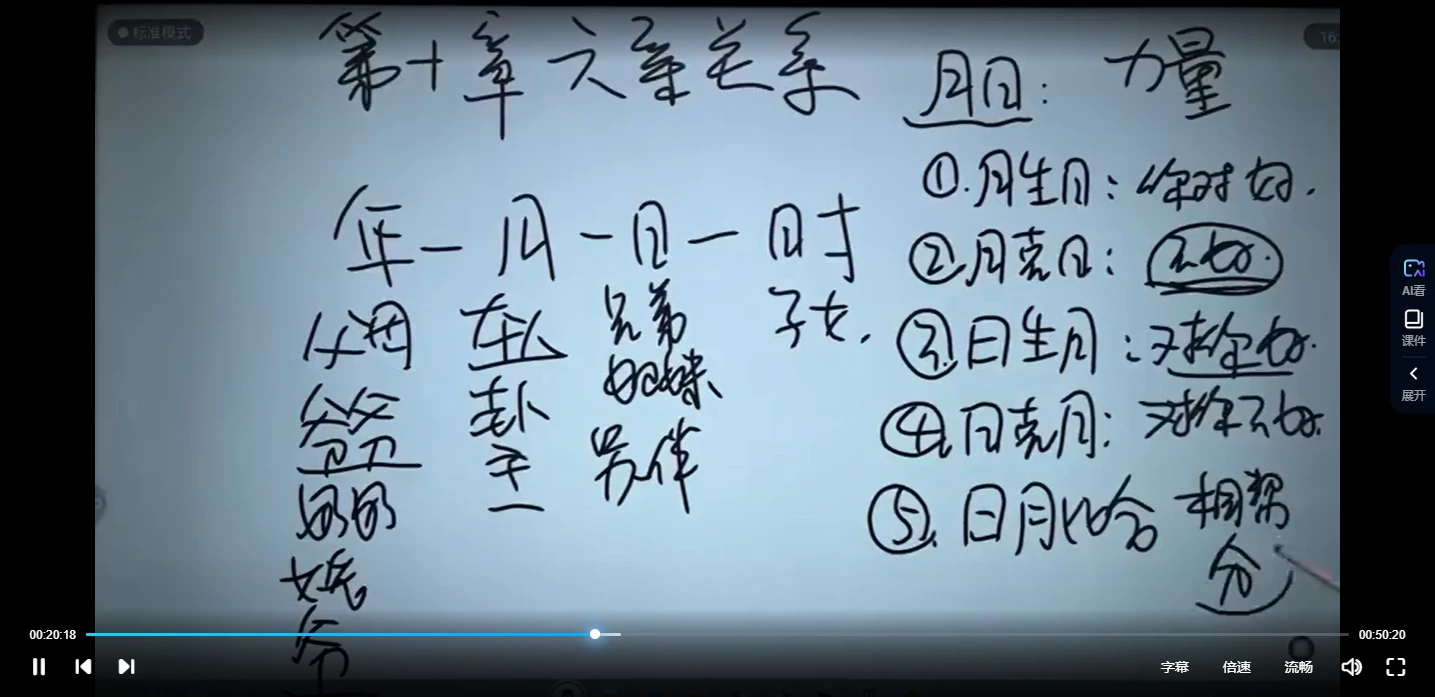 标准模式
16:
第十章 六亲关系
年一月一日一时
父母 本人 兄弟 子女.
姐妹
爷爷 卦主 另伴
奶奶
姥爷
月日: 力量
①.月生日: 你对 好.
②月克日: 不好.
③.日生月: 对你好.
④.日克月: 对你不好.
⑤.日月比合 相帮
分
AI看
课件
展开
00:20:18
00:50:20
字幕 倍速 流畅